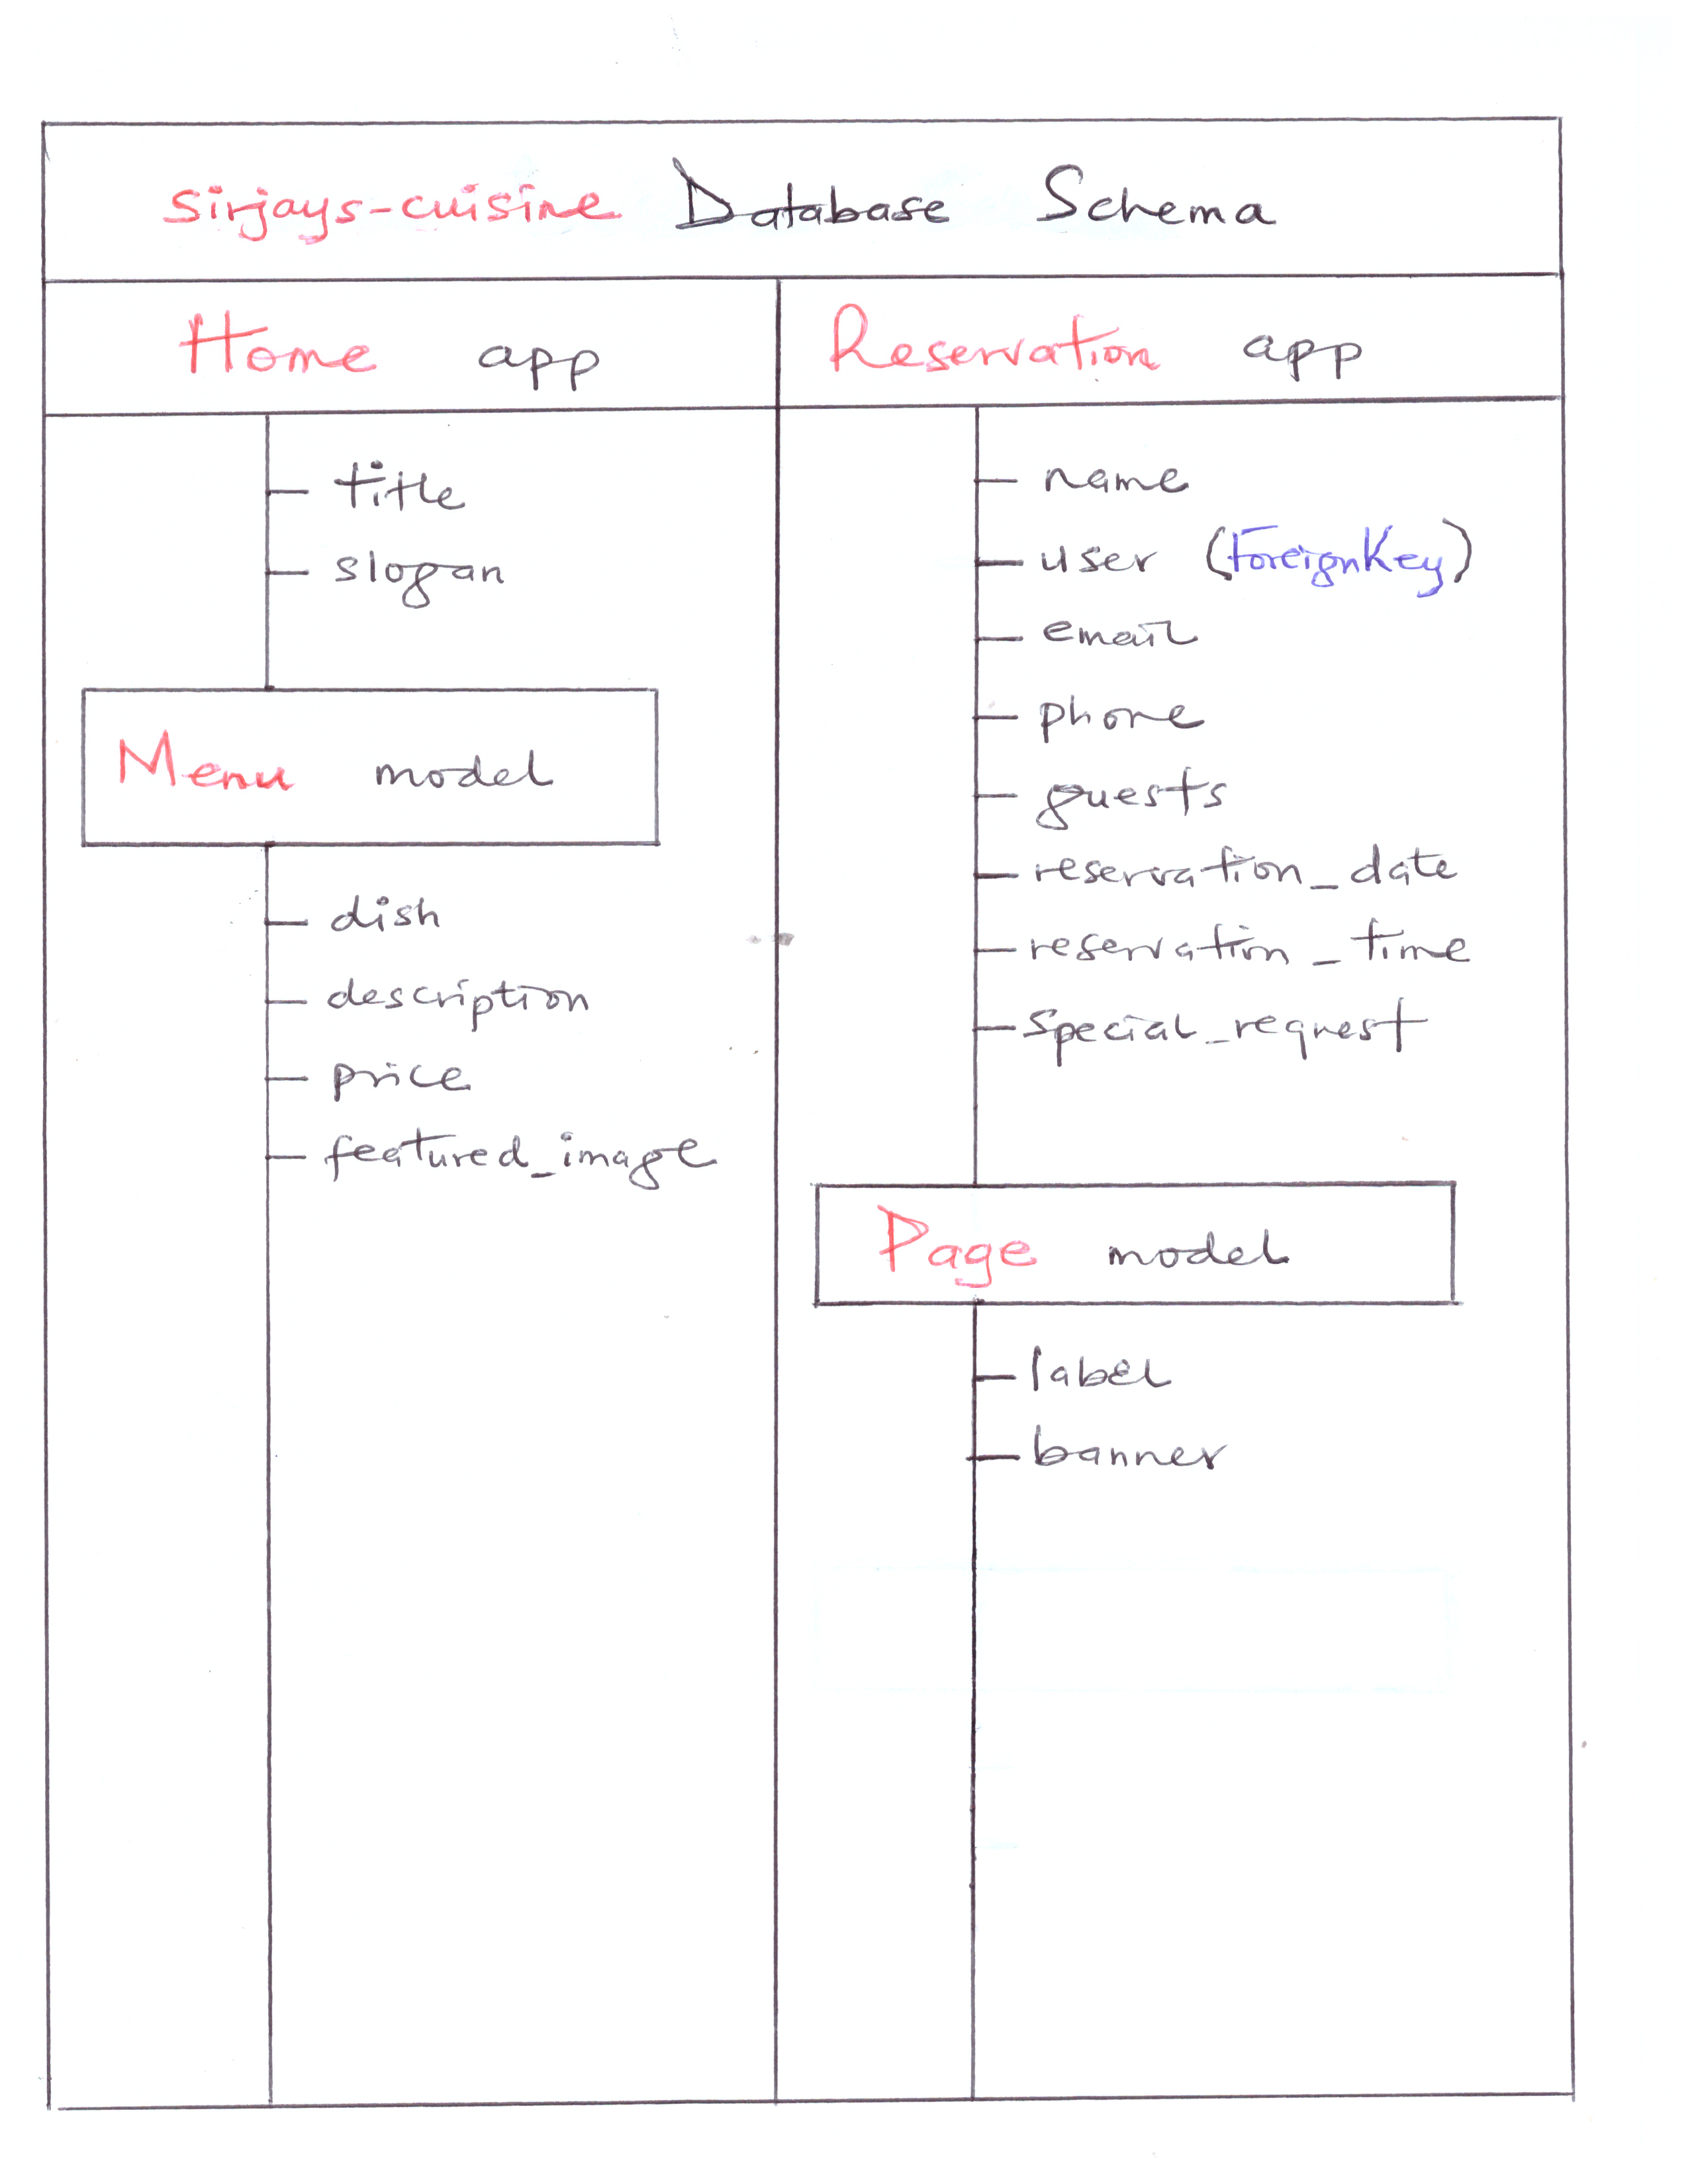 sirjays-cuisine Database Schema
Home app
title
slogan
Menu model
dish
description
price
featured_image
Reservation app
name
user (ForeignKey)
email
phone
guests
reservation_date
reservation_time
special_request
Page model
label
banner